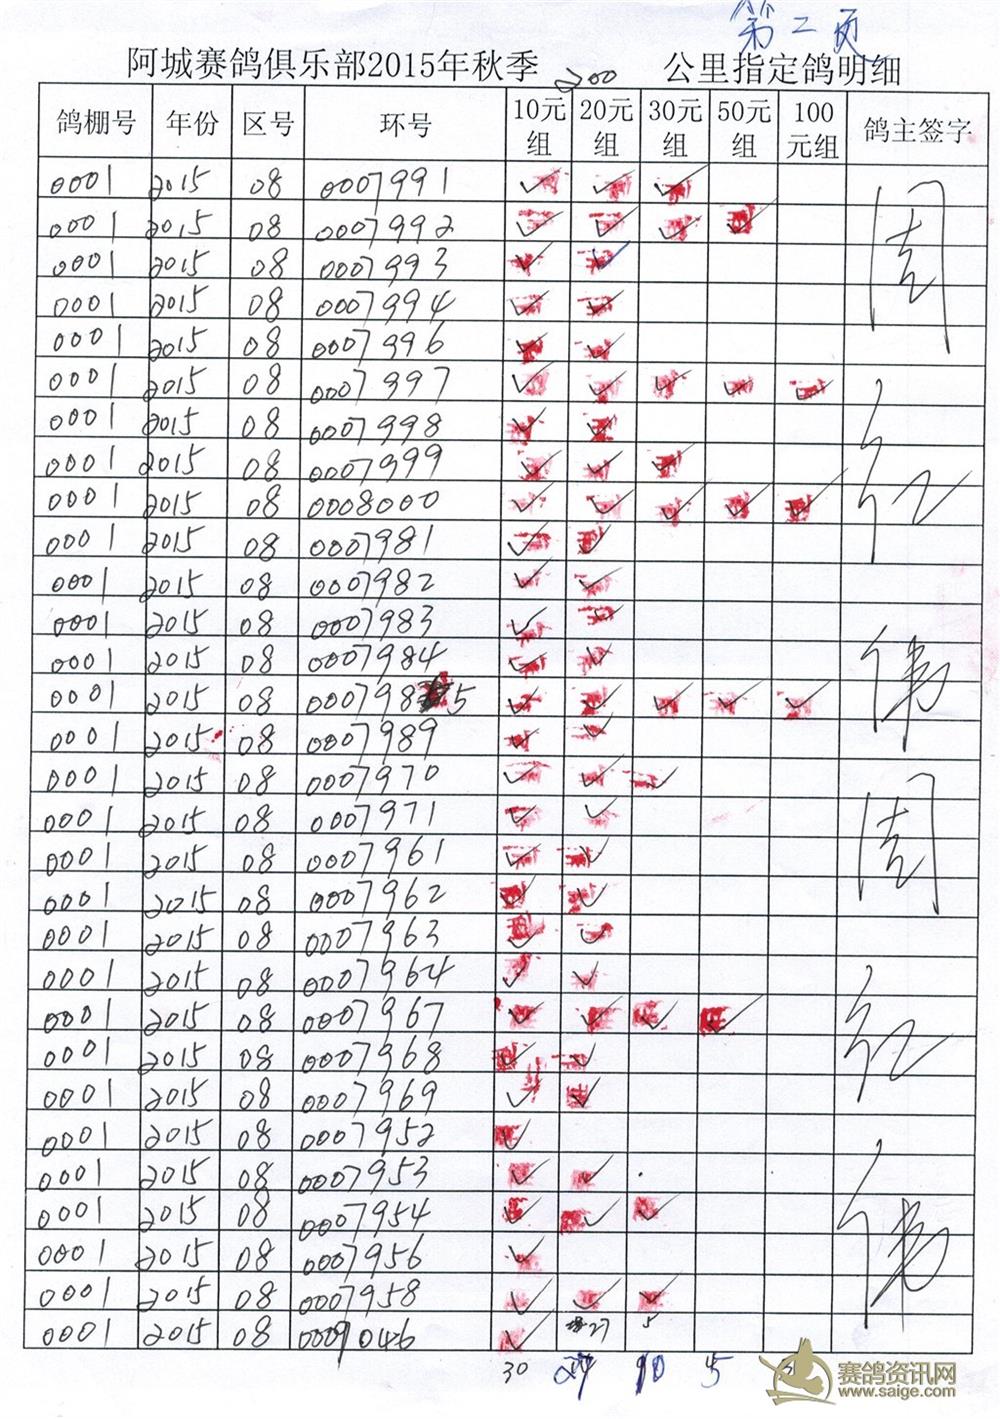 第二页
阿城赛鸽俱乐部2015年秋季 200 公里指定鸽明细
鸽棚号 年份 区号 环号 10元组 20元组 30元组 50元组 100元组 鸽主签字
0001 2015 08 0007991 ✓ ✓ ✓
0001 2015 08 0007992 ✓ ✓ ✓ ✓
0001 2015 08 0007993 ✓ ✓
0001 2015 08 0007994 ✓ ✓
0001 2015 08 0007996 ✓ ✓
0001 2015 08 0007997 ✓ ✓ ✓ ✓ ✓
0001 2015 08 0007998 ✓ ✓
0001 2015 08 0007999 ✓ ✓ ✓
0001 2015 08 0008000 ✓ ✓ ✓ ✓ ✓
0001 2015 08 0007981 ✓ ✓
0001 2015 08 0007982 ✓ ✓
0001 2015 08 0007983 ✓ ✓
0001 2015 08 0007984 ✓ ✓
0001 2015 08 0007985 ✓ ✓ ✓ ✓ ✓
0001 2015 08 0007989 ✓ ✓
0001 2015 08 0007970 ✓ ✓ ✓
0001 2015 08 0007971 ✓ ✓
0001 2015 08 0007961 ✓ ✓
0001 2015 08 0007962 ✓ ✓
0001 2015 08 0007963 ✓ ✓
0001 2015 08 0007964 ✓ ✓
0001 2015 08 0007967 ✓ ✓ ✓ ✓
0001 2015 08 0007968 ✓ ✓
0001 2015 08 0007969 ✓ ✓
0001 2015 08 0007952 ✓
0001 2015 08 0007953 ✓ ✓
0001 2015 08 0007954 ✓ ✓ ✓
0001 2015 08 0007956 ✓
0001 2015 08 0007958 ✓ ✓ ✓
0001 2015 08 0009046 ✓
周
红
伟
周
红
伟
30 10 5
赛鸽资讯网
www.saige.com